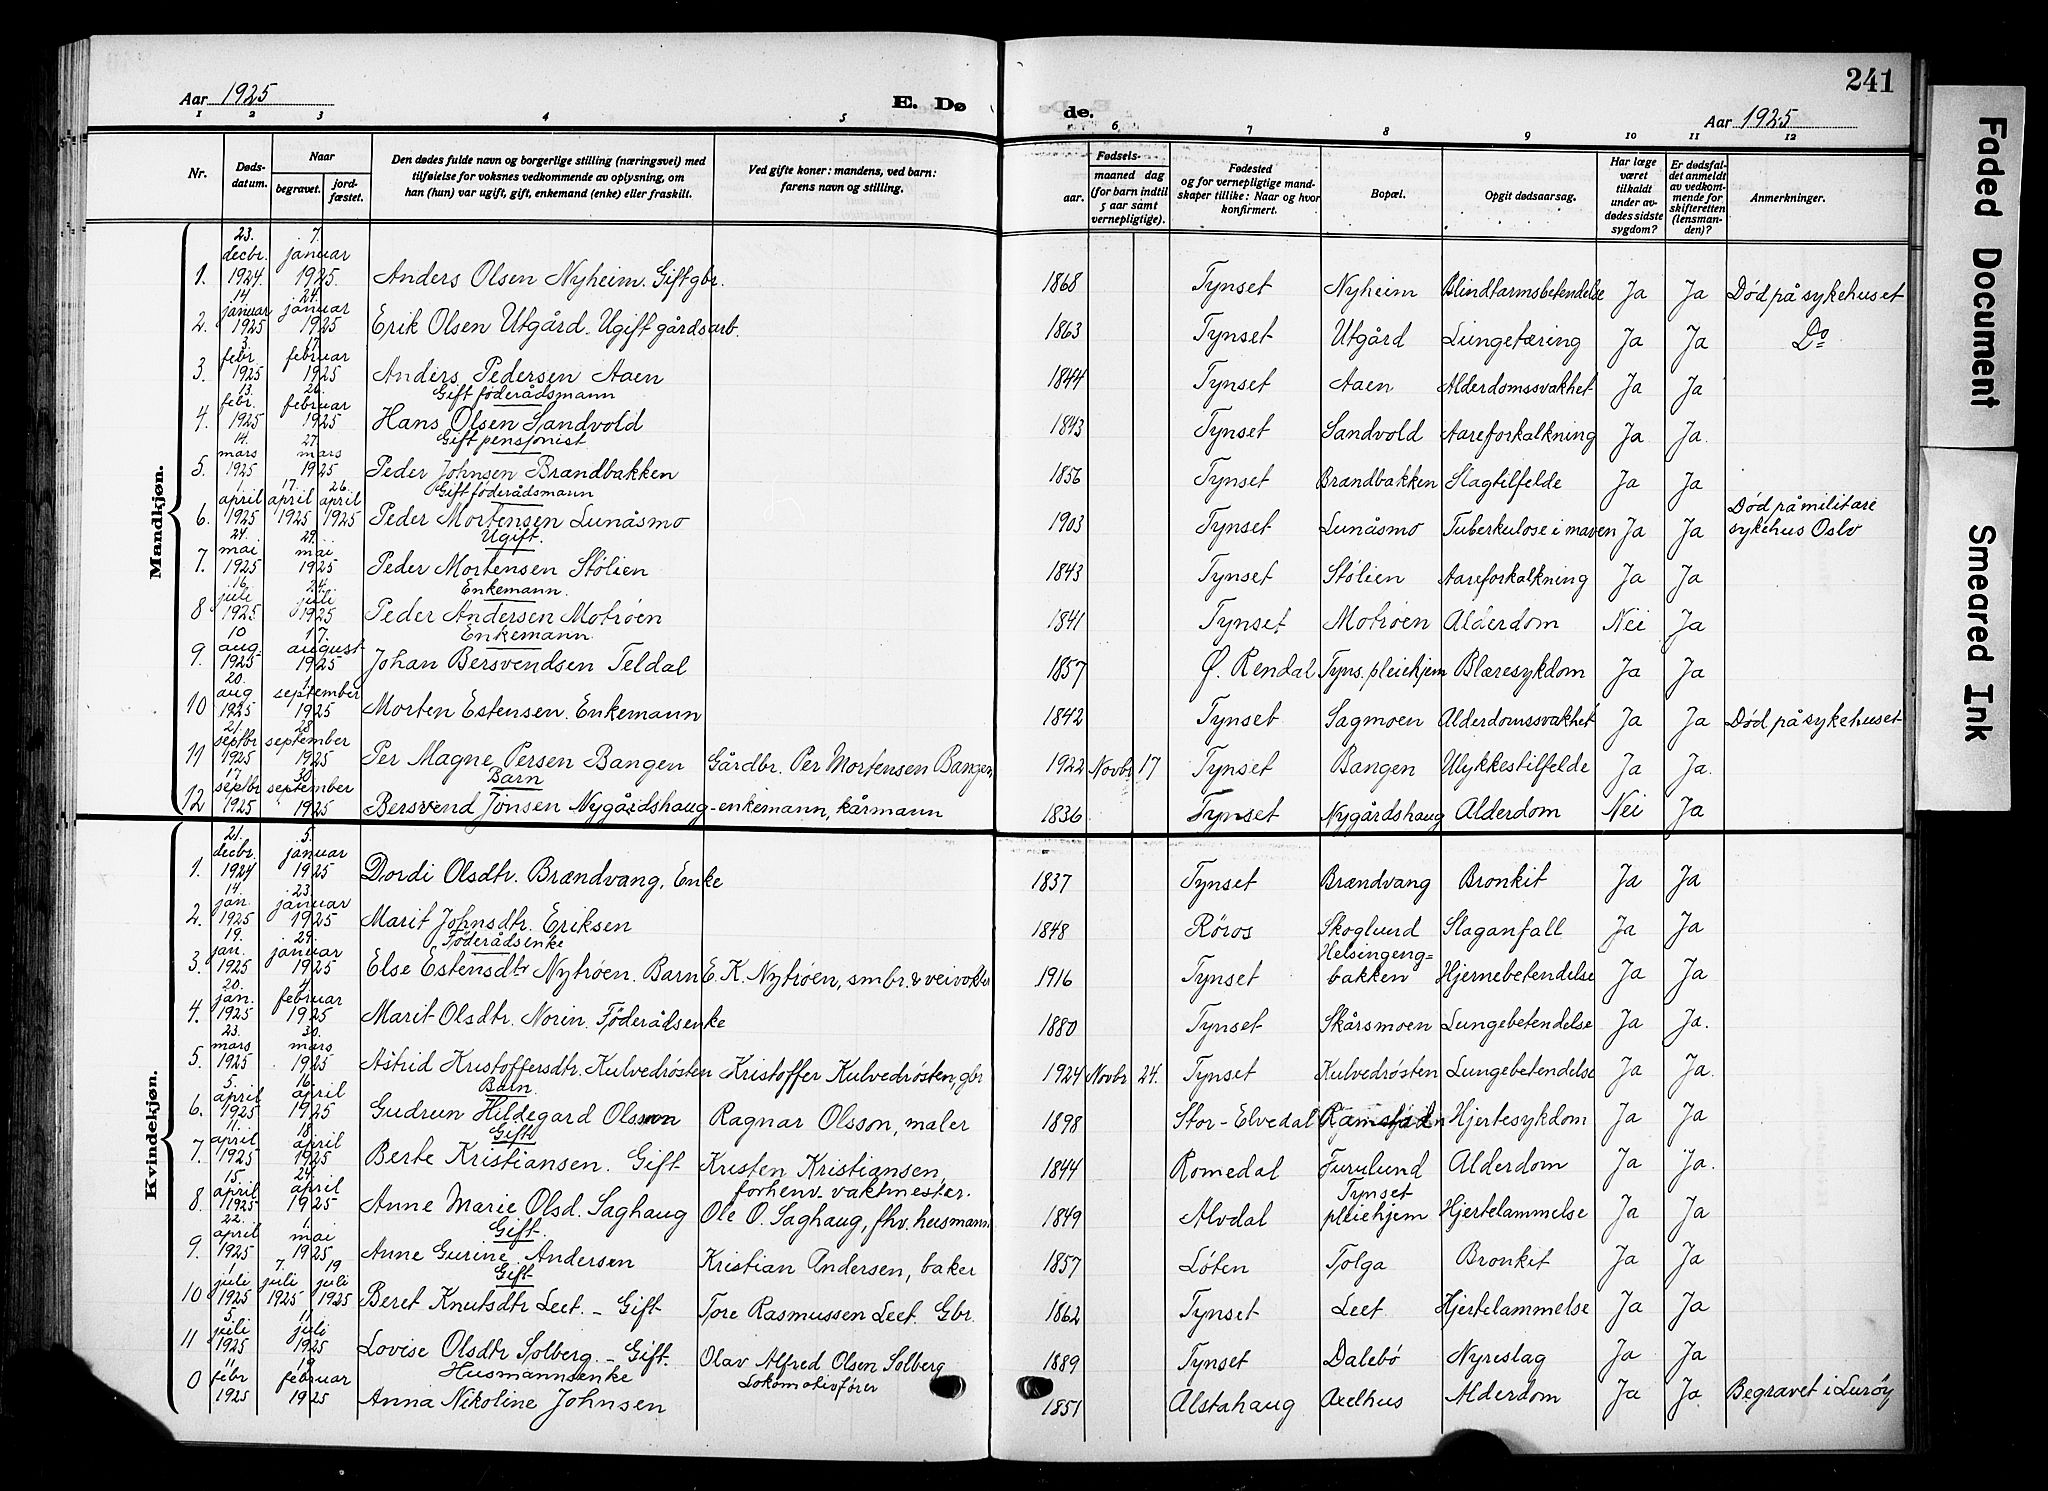 Aar 1925
E. Døde.
Aar 1925
241
1 2 3 4 5 6 7 8 9 10 11 12
Nr.
Døds-datum.
Naar
begravet.
jord-fæstet.
Den dødes fulde navn og borgerlige stilling (næringsvei) med
tilføielse for voksnes vedkommende av oplysning, om
han (hun) var ugift, gift, enkemand (enke) eller fraskilt.
Ved gifte koner: mandens, ved barn:
farens navn og stilling.
Fødsels-
aar.
maaned dag
(for barn indtil
5 aar samt
vernepligtige).
Fødested
og for vernepligtige mand-
skaper tillike: Naar og hvor
konfirmert.
Bopæl.
Opgit dødsaarsag.
Har læge
været
tilkaldt
under av-
dødes sidste
sygdom?
Er dødsfal-
det anmeldt
av vedkom-
mende for
skifteretten
(lensman-
den)?
Anmerkninger.
Mandkjøn.
1. 23. decbr. 1924. 7. januar 1925. Anders Olsen Nyheim. Gift gbr. 1868 Tynset Nyheim Blindtarmsbetendelse Ja Ja Død på sykehuset
2. 14 januar 1925 24. januar 1925 Erik Olsen Utgård. Ugift gårdsarb. 1863 Tynset Utgård Lungetæring Ja Ja Do
3. 3. febr. 1925 17. februar 1925 Anders Pedersen Aaen Gift føderådsmann 1844 Tynset Aaen Alderdomssvakhet Ja Ja
4. 13. febr. 1925 26. februar 1925 Hans Olsen Sandvold Gift pensjonist 1843 Tynset Sandvold Aareforkalkning Ja Ja.
5. 14. mars 1925 27. mars 1925 Peder Johnsen Brændbakken Gift føderådsmann 1856 Tynset Brændbakken Slagtilfelde Ja Ja
6. 1. april 1925 17. april 1925 26. april 1925 Peder Mortensen Lunåsmo Ugift. 1903 Tynset Lunåsmo Tuberkulose i maven Ja Ja Død på militare sykehus Oslo
7. 24. mai 1925 29. mai 1925 Peder Mortensen Stølien Enkemann. 1843 Tynset Stølien Aareforkalkning Ja Ja
8 16. juli 1925 24. juli 1925 Peder Andersen Motrøen Enkemann. 1841 Tynset Motrøen Alderdom Nei Ja
9. 10 aug. 1925 17. august 1925 Johan Bersvendsen Teldal 1857 Ø. Rendal Tyns. pleiehjem Blæresykdom Ja Ja
10 20. aug 1925 1. september 1925 Morten Estensen. Enkemann 1842 Tynset Sagmoen Alderdomssvakhet Ja Ja Død på sykehuset
11 21. septbr 1925 28. september 1925 Per Magne Persen Bangen Barn Gårdbr. Per Mortensen Bangen 1922 Novbr 17 Tynset Bangen Ulykkestilfelde Ja Ja.
12 17. septbr 1925 30. september 1925 Bersvend Jonsen Nygårdshaug - enkemann, kårmann 1836 Tynset Nygårdshaug Alderdom Nei Ja
Kvindekjøn.
1. 21. decbr. 1924 5. januar 1925 Dordi Olsdtr. Brændvang, Enke 1837 Tynset Brændvang Bronkit Ja Ja
2. 14. jan. 1925 23. januar 1925 Marit Johnsdtr. Eriksen Føderådsenke 1848 Røros Skoglund Slaganfall Ja Ja
3. 19. jan. 1925 29. januar 1925 Else Estensdtr Nytrøen. Barn E. K. Nytrøen, smbr. & veivokter 1916 Tynset Helsingeng=bakken Hjernebetendelse Ja Ja
4. 20. jan. 1925 4. februar 1925 Marit Olsdtr. Norin. Føderådsenke 1880 Tynset Skårsmoen Lungebetendelse Ja Ja.
5. 23. mars 1925 30. mars 1925 Astrid Kristoffersdtr. Kulvedrøsten Barn Kristoffer Kulvedrøsten, gbr 1924 Novbr 24. Tynset Kulvedrøsten Lungebetendelse Ja Ja.
6. 5. april 1925 16. april 1925 Gudrun Hildegard Olsson Gift Ragnar Olsson, maler 1898 Stor-Elvedal Hjertesykdom Ja Ja
7. 11. april 1925 18. april 1925 Berte Kristiansen. Gift Kristen Kristiansen, forhenv. vaktmester. 1844 Romedal Furulund Alderdom Ja Ja.
8. 15. april 1925 24. april 1925 Anne Marie Olsd. Saghaug Gift. Ole O. Saghaug, fhv. husmann 1849 Alvdal Tynset pleiehjem Hjertelammelse Ja Ja
9. 22. april 1925 1. mai 1925 Anne Gurine Andersen Gift Kristian Andersen, baker 1857 Løten Tolga Bronkit Ja Ja
10 1 juli 1925 7. juli 1925 19 juli 1925 Beret Knutsdtr Leet. - Gift Tore Rasmussen Leet. Gbr. 1862 Tynset Leet. Hjertelammelse Ja Ja
11 5. juli 1925 11. juli 1925 Lovise Olsdtr Solberg. - Gift. Olav Alfred Olsen Solberg Lokomotivfører 1889 Tynset Dalebø Nyreslag Ja Ja
0 11 febr 1925 19. februar 1925 Husmannsenke Anna Nikoline Johnsen 1851 Alstahaug Axelhus Alderdom Ja Ja. Begravet i Lurøy
Faded Document
Smeared Ink